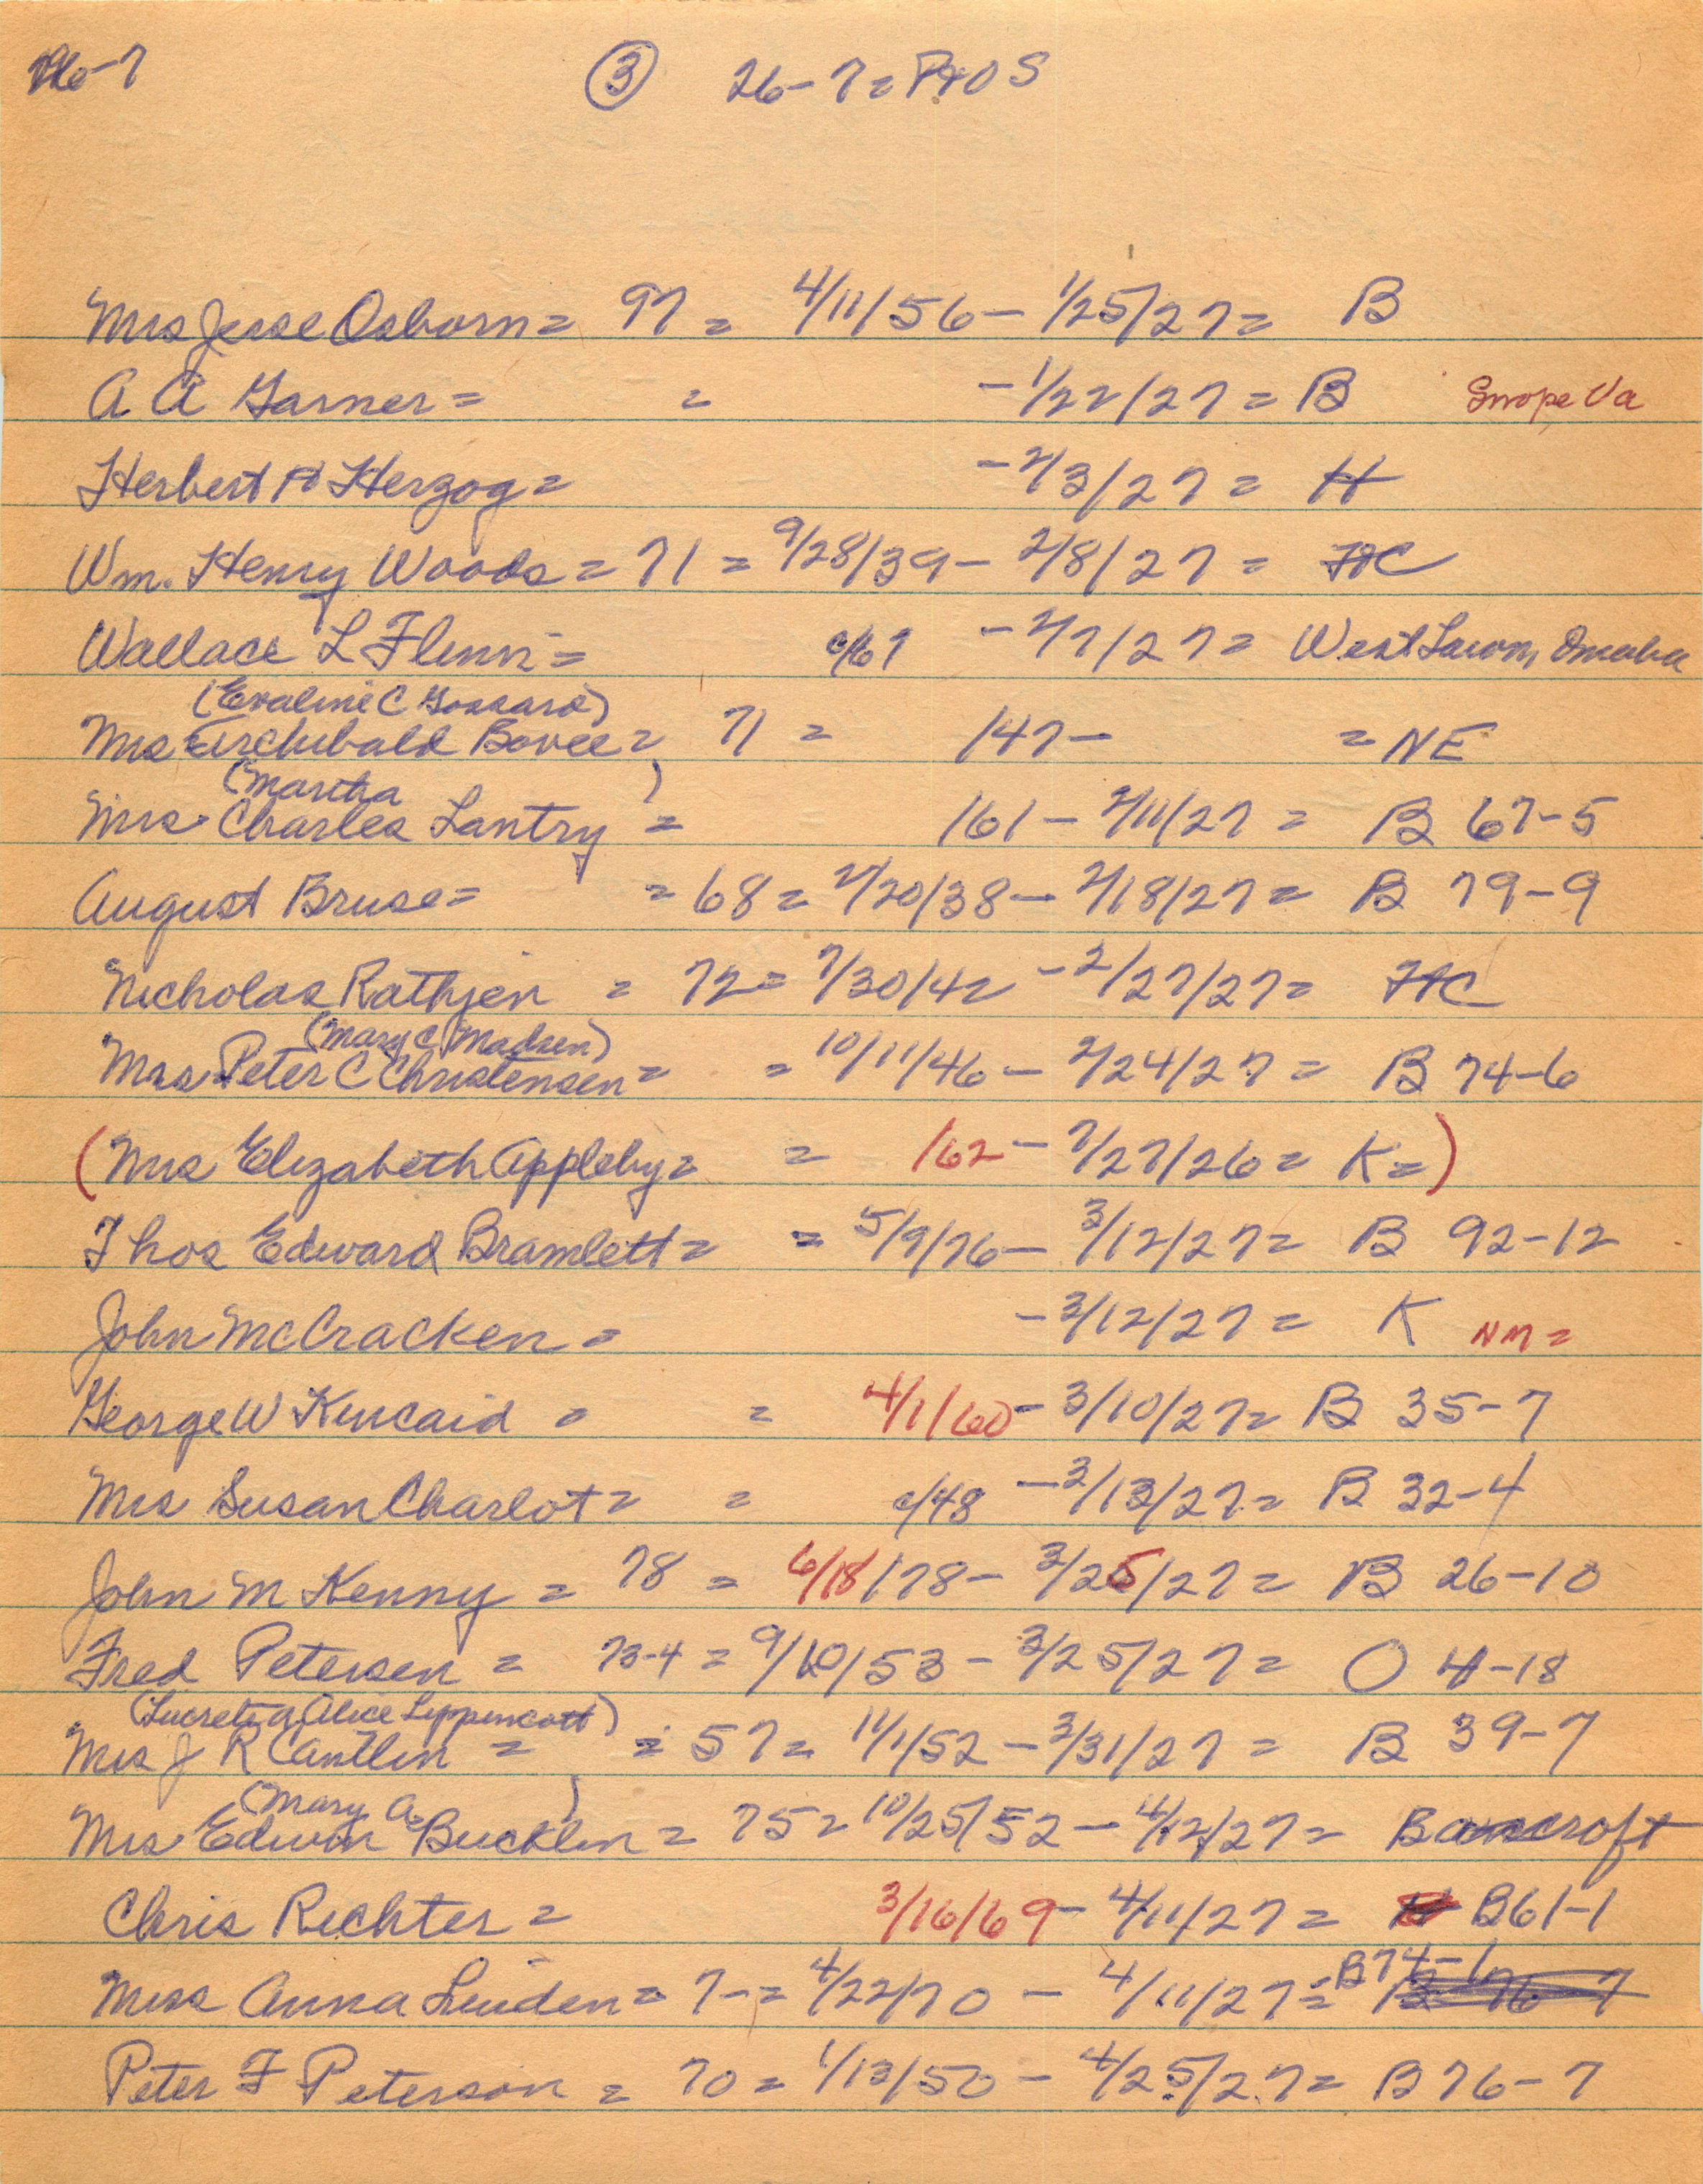 26-7 ③ 26-7 = P40S
Mrs Jesse Osborn = 97 = 4/11/56 - 1/25/27 = B
A A Garner = = - 1/22/27 = B
Herbert H Herzog = - 2/3/27 = H
Wm. Henry Woods = 71 = 9/28/39 - 2/8/27 = HC
Wallace L Flenn = c/67 - 2/7/27 = West Lawn, Omaha
(Evaline C Gossard)
Mrs Archibald Bovee = 71 = /47 - = NE
(Martha )
Mrs Charles Lantry = /61 - 2/11/27 = B 67-5
August Bruse = = 68 = 2/20/38 - 2/18/27 = B 79-9
Nicholas Rathjen = 72 = 7/30/42 - 2/27/27 = HC
(Mary C Madsen)
Mrs Peter C Christensen = = 10/11/46 - 2/24/27 = B 74-6
(Mrs Elizabeth Appleby = = /62 - 7/27/26 = K = )
Thos Edward Bramlett = = 5/9/76 - 3/12/27 = B 92-12
John McCracken = - 3/12/27 = K NM =
George W Kincaid = = 4/1/60 - 3/10/27 = B 35-7
Mrs Susan Charlot = = c/48 - 3/13/27 = B 32-4
John M Kenny = 78 = 6/18/78 - 3/25/27 = B 26-10
Fred Petersen = 73-4 = 9/10/53 - 3/25/27 = O 4-18
(Lucretia Alice Lippencott)
Mrs J R Cantlin = = 57 = 11/1/52 - 3/31/27 = B 39-7
(Mary A )
Mrs Edwin Bucklin = 75 = 10/25/52 - 4/12/27 = Bancroft
Chris Richter = 3/16/69 - 4/11/27 = B61-1
Miss Anna Linden = 7- = 4/22/70 - 4/11/27 = B74-1
Peter F Peterson = 70 = 1/13/50 - 4/25/27 = B 76-7